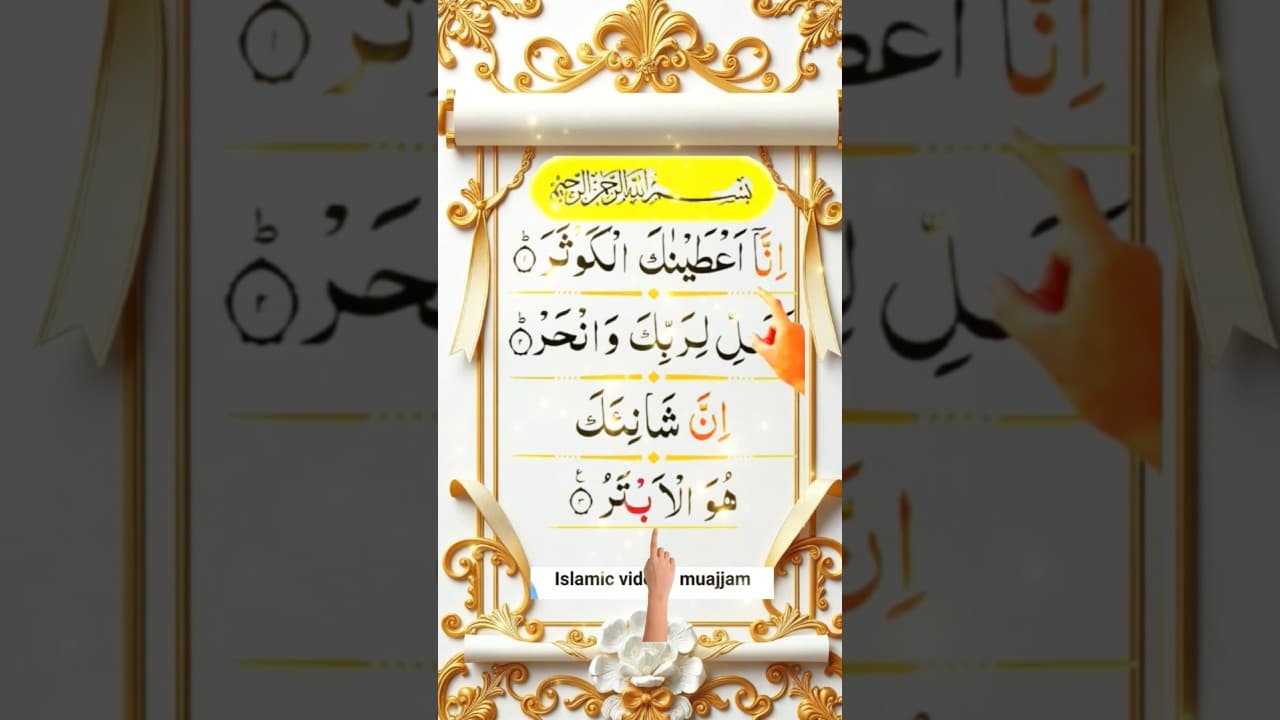 بِسْمِ اللهِ الرَّحْمٰنِ الرَّحِيْمِ
اِنَّاۤ اَعْطَيْنٰكَ الْكَوْثَرَ ؕ ۝۱
لِرَبِّكَ وَانْحَرْ ؕ ۝۲
اِنَّ شَانِئَكَ
هُوَ الْاَبْتَرُ ۝۳ ع
Islamic muajjam